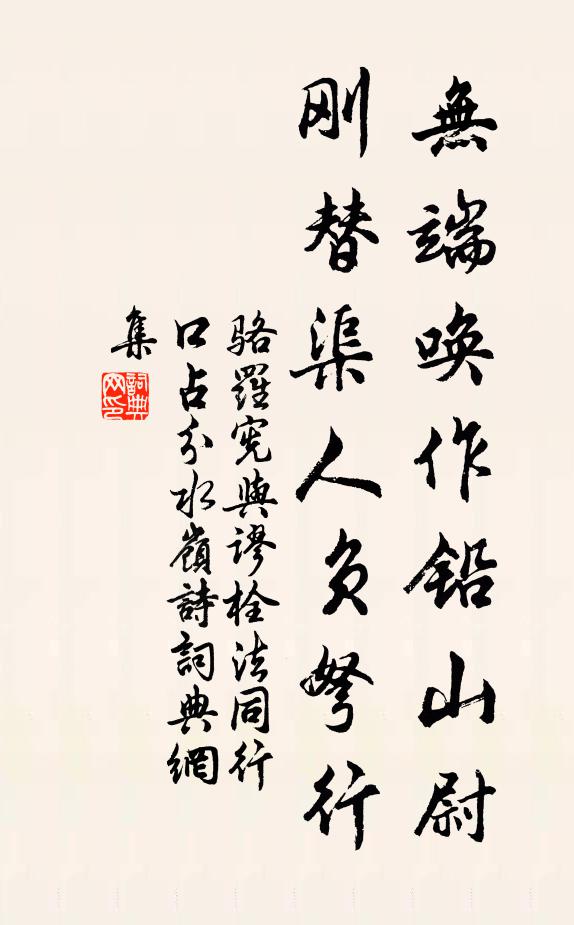 無端喚作鉛山尉
剛替渠人負弩行
駱羅憲與謬栓法同行
口占分水嶺詩詞典網
集
詞典網印